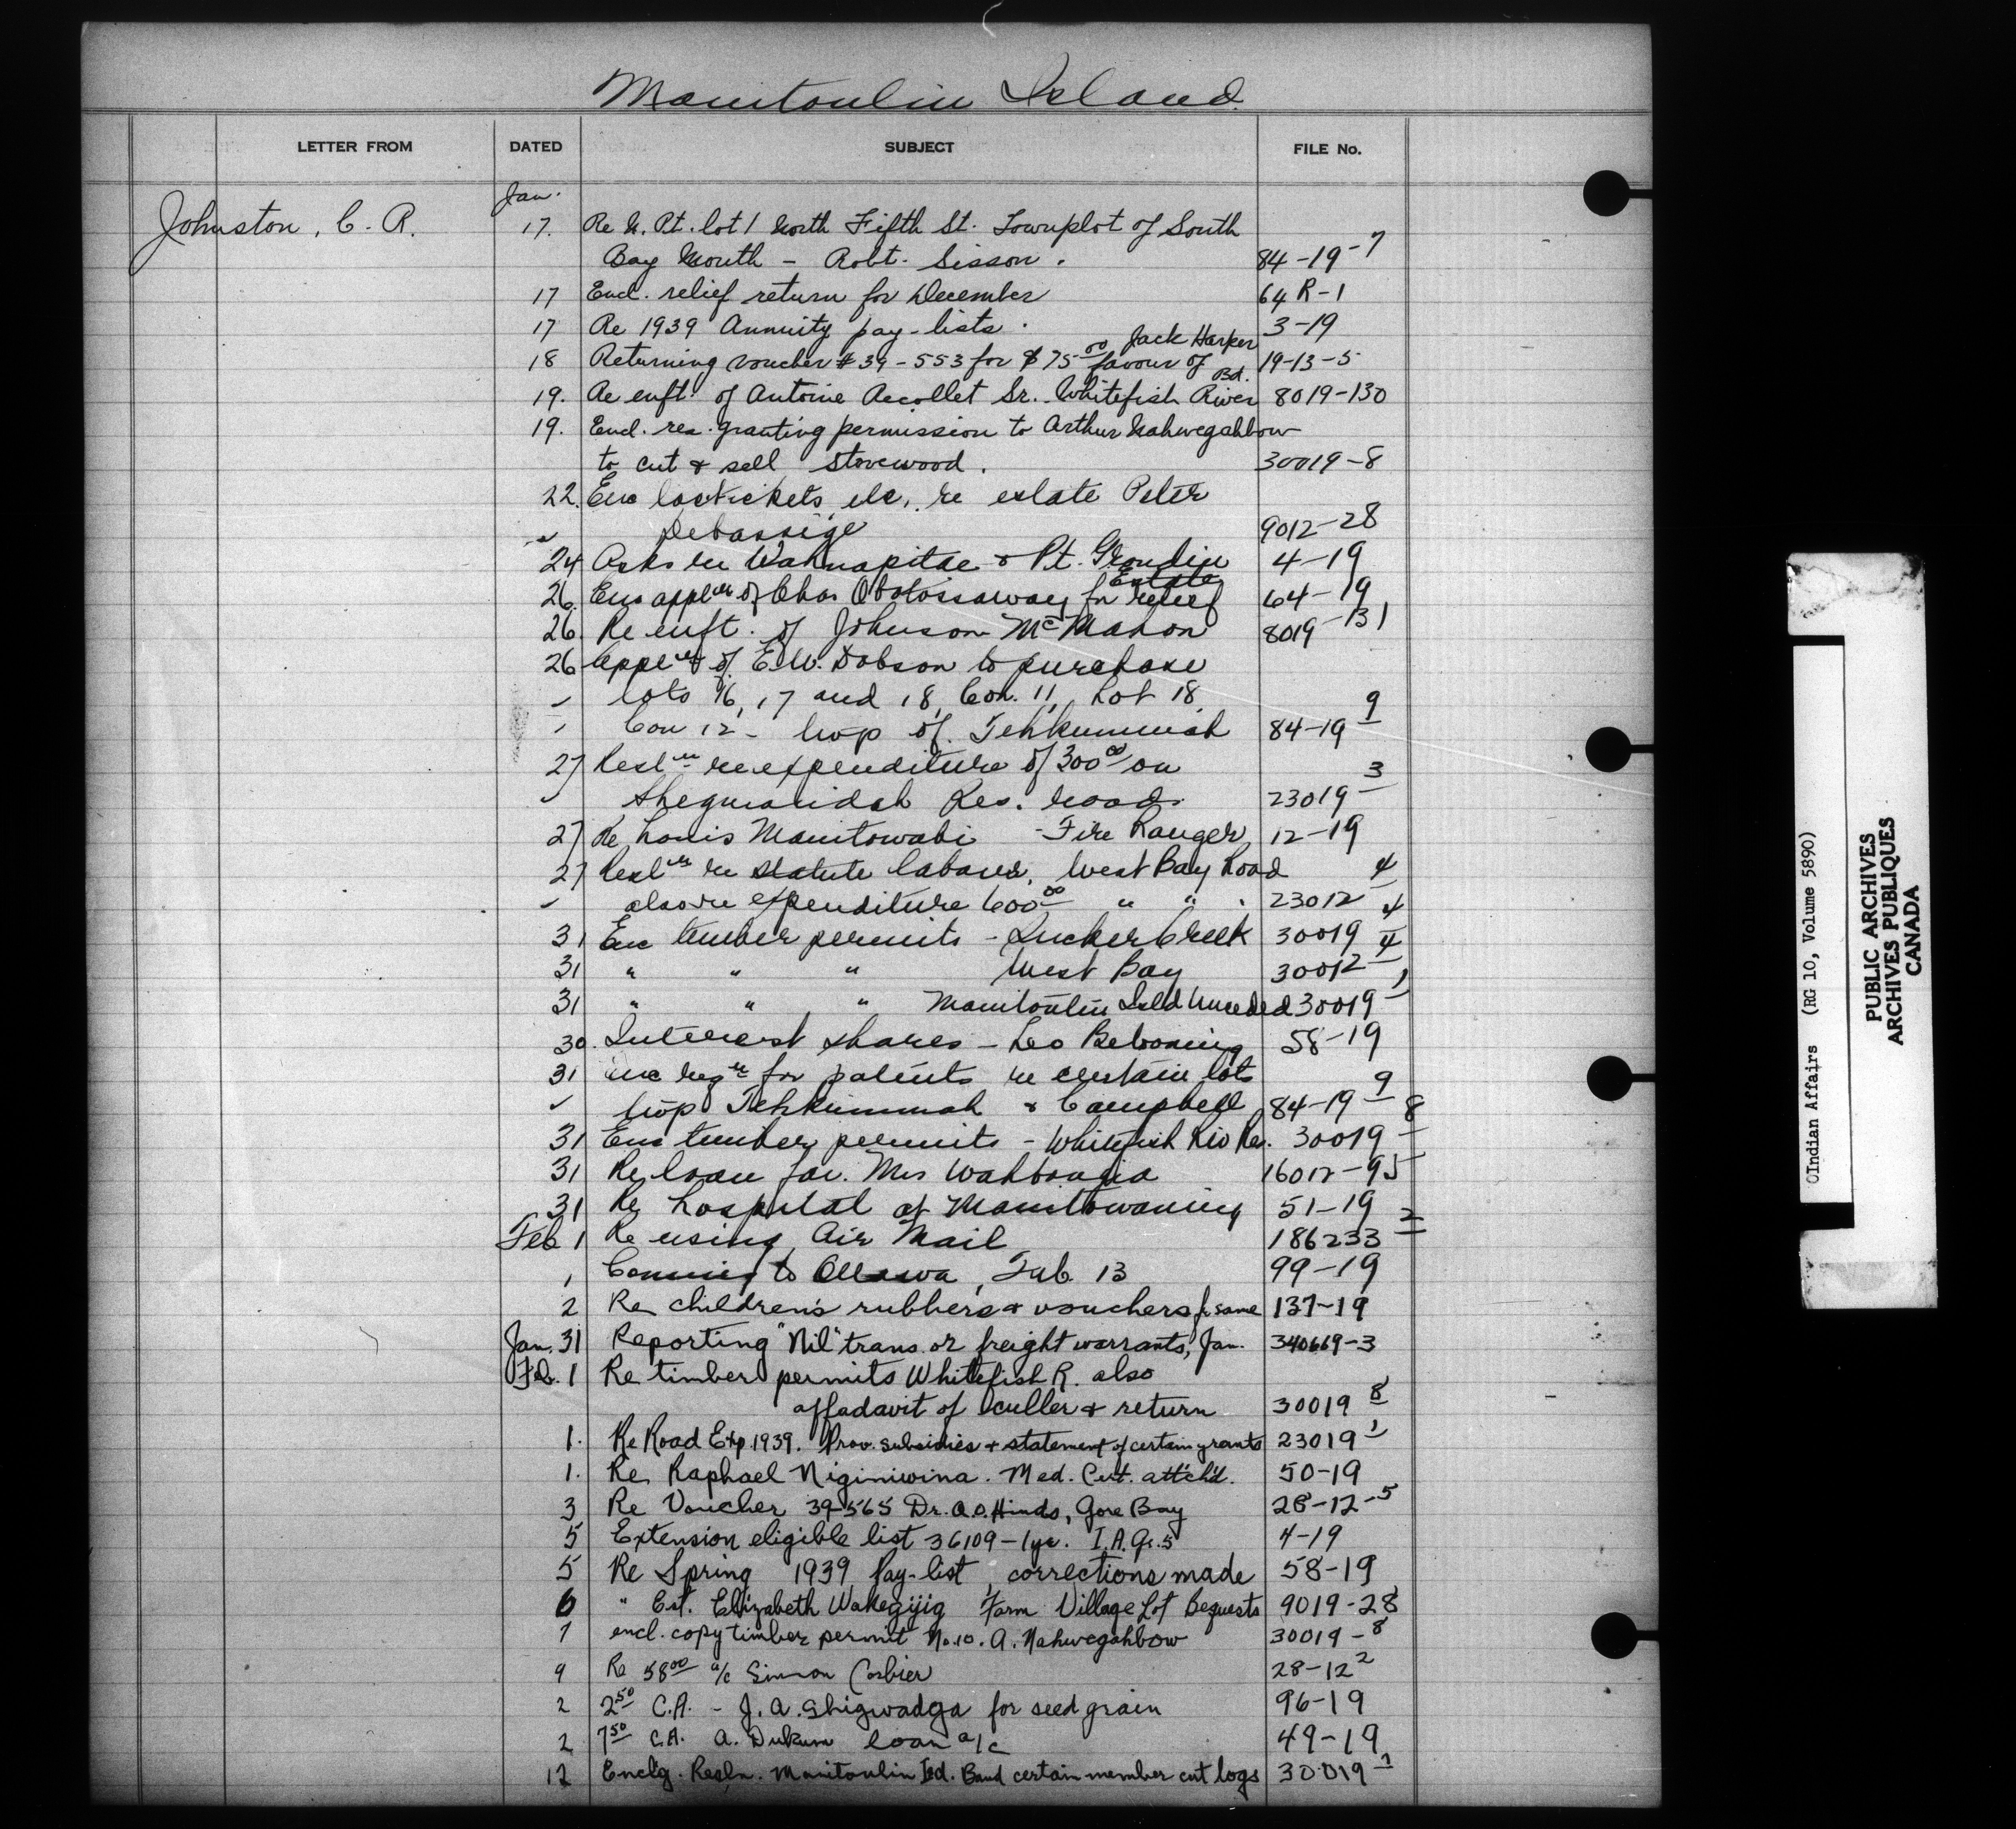 Manitoulin Island
LETTER FROM DATED SUBJECT FILE No.
Jan.
Johnston, C. R. 17. Re N. Pt. lot 1 North Fifth St. Townplot of South
Bay Mouth - Robt. Sisson. 84-19-7
17 Encl. relief return for December 64 R-1
17 Re 1939 Annuity pay-lists. 3-19
Jack Harper
18 Returning voucher # 39-553 for $75 00 favour of 19-13-5
Bd.
19. Re enft. of Antoine Recollet Sr. Whitefish River 8019-130
19. Encl. res. granting permission to Arthur Nahwegahbow
to cut & sell stovewood. 30019-8
22. Enc loc tickets, etc, re estate Peter
" Debassige 9012-28
24 Asks re Wahnapitae & Pt. Grondin 4-19
Estate
26. Enc applcn of Chas Obotossaway for relief 64-19
26. Re enft. of Johnson McMahon 8019-131
26 applcn of E.W. Dobson to purchase
" lots 16, 17 and 18, Con. 11, Lot 18,
" Con 12 - twp of Tehkummah 84-19 9
27 Resln re expenditure of 300 00 on
" Sheguiandah Res. roads. 23019 3
27 Re Louis Manitowabi - Fire Ranger 12-19
27 Resln re statute labour, West Bay Road
" also re expenditure 600 00 " " . 23012 4
31 Enc timber permits - Sucker Creek 30019 4
31 " " " West Bay 30012 4
31 " " " Manitoulin Isld Unceded 30019 1
30. Interest shares - Leo Bebonning 58-19
31 Enc reqn for patents re certain lots
" twp Tehkummah & Campbell 84-19 9
31 Enc timber permits - Whitefish Riv Res. 30019 8
31 Re loan for Mrs 16012-95
31 Re hospital at Manitowaning 51-19
Feb 1 Re using Air Mail 186233 2
1 Coming to Ottawa, Feb. 13 99-19
2 Re children's rubbers & vouchers for same 137-19
Jan. 31 Reporting "Nil" trans. or freight warrants, Jan. 340669-3
Feb. 1 Re timber permits Whitefish R. also
affadavit of culler & return 30019 8
1. Re Road Exp. 1939. Prov. subsidies & statement of certain grants 23019 1
1. Re Raphael Niginiwina. Med. Cert. attch'd. 50-19
3 Re Voucher 39-565 Dr. A.O. Hinds, Gore Bay 28-12-5
5 Extension eligible list 36109-1yr. I.A. Gr. 5 4-19
5 Re Spring 1939 Pay-list, corrections made 58-19
6 " Est. Elizabeth Wakegijig Farm Village Lot Bequests 9019-28
7 encl. copy timber permit No.10. A. Nahwegahbow 30019-8
9 Re 58 00 a/c Simon Corbier 28-12 2
2 2 50 C.A. - J. A. Shigwadja for seed grain 96-19
2 7 50 C.A. A. loan a/c 49-19
12 Enclg. Resln. Manitoulin Isd. Band certain member cut logs 30019-1
©Indian Affairs (RG 10, Volume 5890)
PUBLIC ARCHIVES
ARCHIVES PUBLIQUES
CANADA